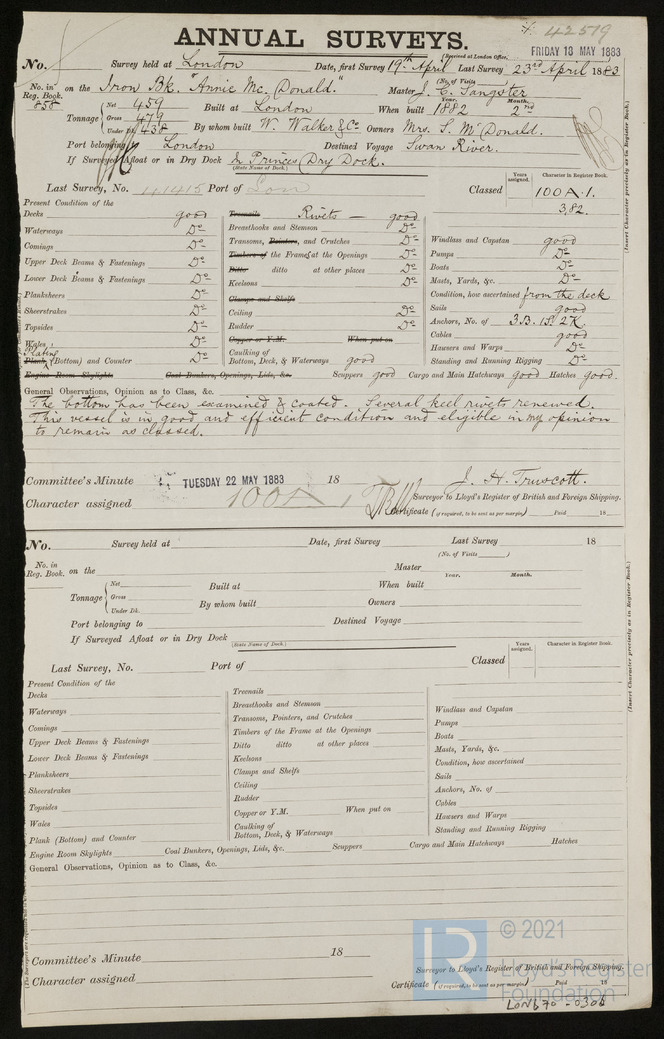 42519
ANNUAL SURVEYS.
(Received at London Office, FRIDAY 18 MAY 1883
No. Survey held at London Date, first Survey 19th April Last Survey 23rd April 1883
(No. of Visits)
No. in Reg. Book. 858 on the Iron Bk. "Annie Mc Donald." Master J. C. Sangster
Tonnage Net 459 Gross 479 Under Dk. 438 Built at London When built Year. 1882 Month. 2nd
By whom built W. Walker & Co Owners Mrs. S. McDonald.
Port belonging to London Destined Voyage Swan River.
If Surveyed Afloat or in Dry Dock In Princes Dry Dock.
(State Name of Dock.)
Last Survey, No. 41415 Port of Lon Classed Years assigned. Character in Register Book.
100 A.1.
3,82.
(Insert Character precisely as in Register Book.)
Present Condition of the
Decks good
Waterways Do
Comings Do
Upper Deck Beams & Fastenings Do
Lower Deck Beams & Fastenings Do
Planksheers Do
Sheerstrakes Do
Topsides Do
Wales Do
Plating
Plank (Bottom) and Counter Do
Treenails Rivets — good
Breasthooks and Stemson Do
Transoms, Pointers, and Crutches Do
Timbers of the Frame at the Openings Do
Ditto ditto at other places Do
Keelsons Do
Clamps and Shelfs
Ceiling Do
Rudder Do
Copper or Y.M. When put on
Caulking of
Bottom, Deck, & Waterways good
Windlass and Capstan good
Pumps Do
Boats Do
Masts, Yards, &c. Do
Condition, how ascertained from the deck
Sails good
Anchors, No. of 3.B. 1S. 2K.
Cables good
Hawsers and Warps Do
Standing and Running Rigging Do
Engine Room Skylights Coal Bunkers, Openings, Lids, &c. Scuppers good Cargo and Main Hatchways good Hatches good.
General Observations, Opinion as to Class, &c.
The bottom has been examined & coated. Several keel rivets renewed.
This vessel is in good and efficient condition and eligible in my opinion
to remain as classed.
Committee's Minute TUESDAY 22 MAY 1883 18 J. H. Truscott.
Character assigned 100 A 1 Surveyor to Lloyd's Register of British and Foreign Shipping.
Certificate (if required, to be sent as per margin) Paid 18
No. Survey held at Date, first Survey Last Survey 18
(No. of Visits )
No. in Reg. Book. on the Master
Tonnage Net Gross Under Dk. Built at When built Year. Month.
By whom built Owners
Port belonging to Destined Voyage
If Surveyed Afloat or in Dry Dock
(State Name of Dock.)
Last Survey, No. Port of Classed Years assigned. Character in Register Book.
(Insert Character precisely as in Register Book.)
Present Condition of the
Decks
Waterways
Comings
Upper Deck Beams & Fastenings
Lower Deck Beams & Fastenings
Planksheers
Sheerstrakes
Topsides
Wales
Plank (Bottom) and Counter
Treenails
Breasthooks and Stemson
Transoms, Pointers, and Crutches
Timbers of the Frame at the Openings
Ditto ditto at other places
Keelsons
Clamps and Shelfs
Ceiling
Rudder
Copper or Y.M. When put on
Caulking of
Bottom, Deck, & Waterways
Windlass and Capstan
Pumps
Boats
Masts, Yards, &c.
Condition, how ascertained
Sails
Anchors, No. of
Cables
Hawsers and Warps
Standing and Running Rigging
Engine Room Skylights Coal Bunkers, Openings, Lids, &c. Scuppers Cargo and Main Hatchways Hatches
General Observations, Opinion as to Class, &c.
Committee's Minute 18
Character assigned Surveyor to Lloyd's Register of British and Foreign Shipping.
Certificate (if required, to be sent as per margin) Paid 18
LR © 2021
Lloyd's Register
Foundation
LON670-0306